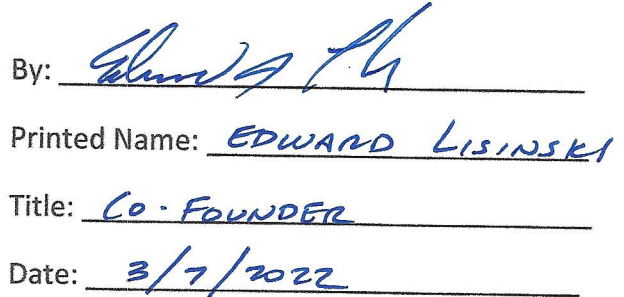 By:
Printed Name: EDWARD LISINSKI
Title: CO-FOUNDER
Date: 3/7/2022